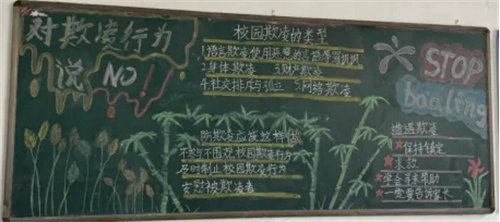 对欺凌行为
说 NO!
校园欺凌的类型
1.语言欺凌使用恶意的言语
2.身体欺凌 3.财产欺凌
4.社交排斥与孤立 5.网络欺凌
防欺凌应该这样做
不参与不围观校园欺凌行为
及时制止校园欺凌行为
安慰被欺凌者
STOP
遭遇欺凌
★保持镇定
★求救
★学会寻求帮助
★一定要告诉家长